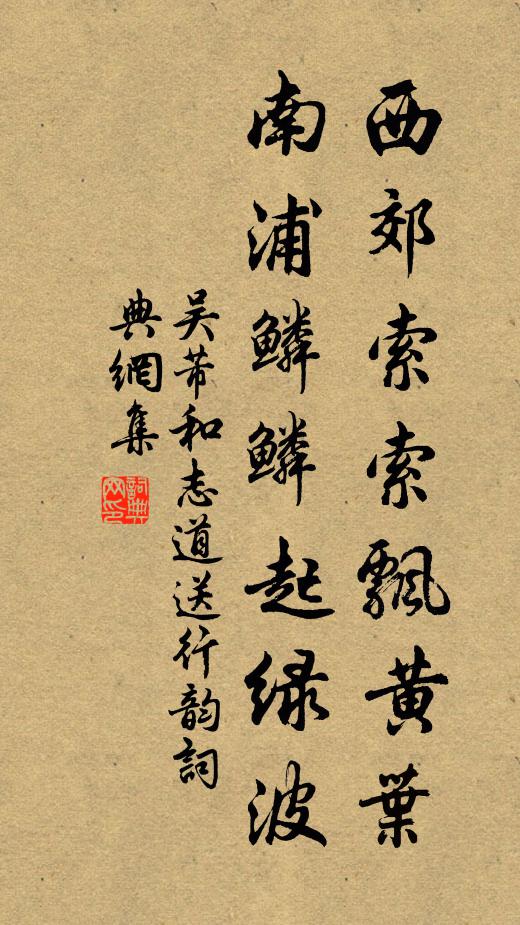 西郊索索飄黄葉
南浦鱗鱗起緑波
吴芾和志道送行韵詞
典網集
詞典网印